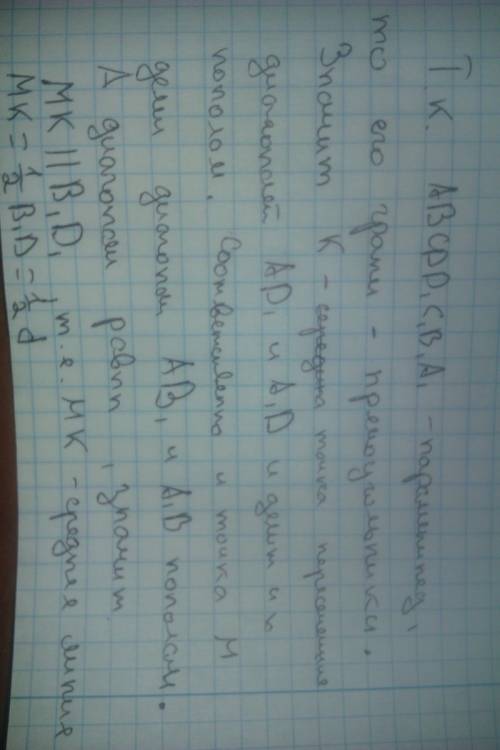 Т.к. ABCDD₁C₁B₁A₁ - параллепед,
то его грани - прямоугольники.
Значит K - середина точка пересечения
диагоналей AD₁ и A₁D и делит их
пополам. Соответственно и точка M
дели диагонали AB₁ и A₁B пополам.
А диагонали равны, значит
MK || B₁D₁, т.е. MK - средняя линия
MK = 1/2 B₁D = 1/2 d